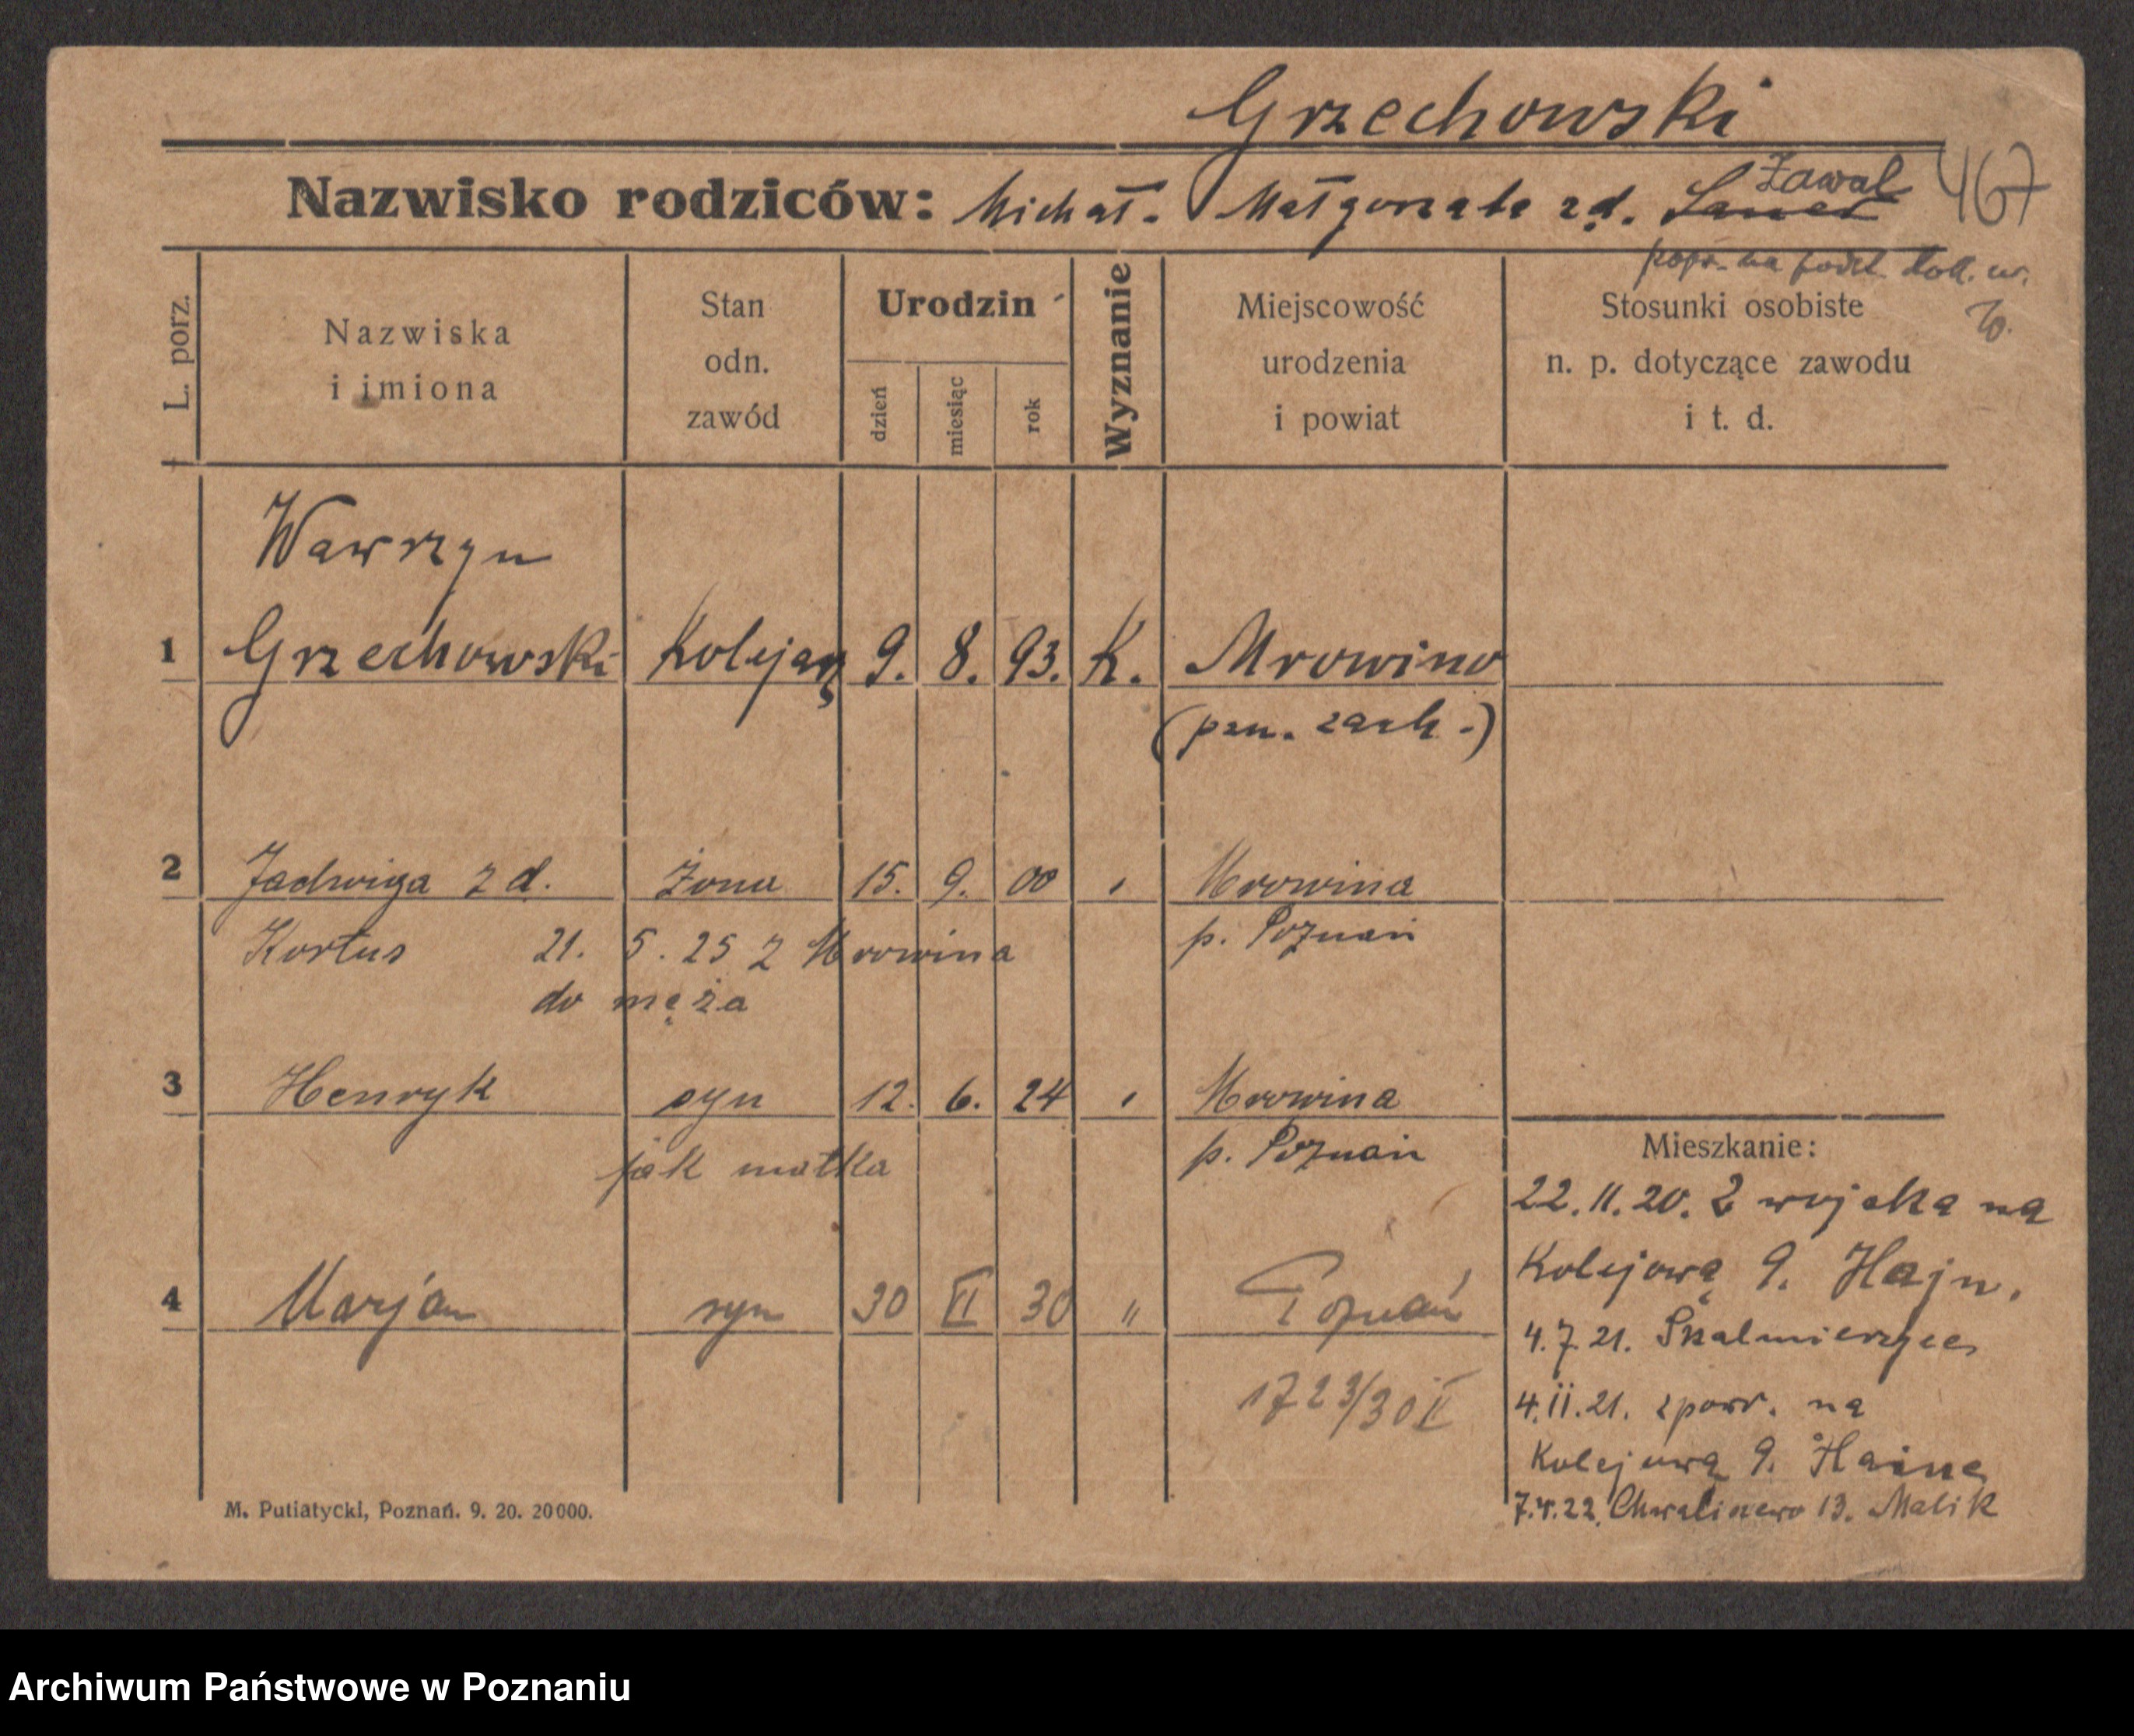 Grzechowski
Nazwisko rodziców: Michał. Małgorzata zd. Zawal
467
popr. na podst. dok. w.
L. porz.
Nazwiska i imiona
Stan odn. zawód
Urodzin
dzień miesiąc rok
Wyznanie
Miejscowość urodzenia i powiat
Stosunki osobiste n. p. dotyczące zawodu i t. d.
Wawrzyn
1 Grzechowski Kolejarz 9. 8. 93. K. Mrowino
(pzn. zach.)
2 Jadwiga z d. żona 15. 9. 00 " Mrowina
Kortus 21. 5. 25 z Mrowina p. Poznań
do męża
3 Henryk syn 12. 6. 24 " Mrowina
jak matka p. Poznań
4 Marjan syn 30 VI 30 " Poznań
1723/30 II
Mieszkanie:
22.11.20. Z wojska na
Kolejową 9. Hajn.
4.7.21. Skalmierzyce
4.11.21. zpowr. na
Kolejową 9. Haine
7.4.22. Chwaliszewo 13. Malik
M. Putiatycki, Poznań. 9. 20. 20000.
Archiwum Państwowe w Poznaniu